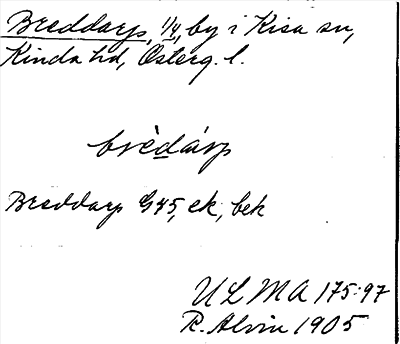 Breddarp, 1/4, by i Kisa sn,
Kinda hd, Österg. l.
brèdárp
Breddarp G45, ek, bek
ULMA 175:97
R. Alvin 1905